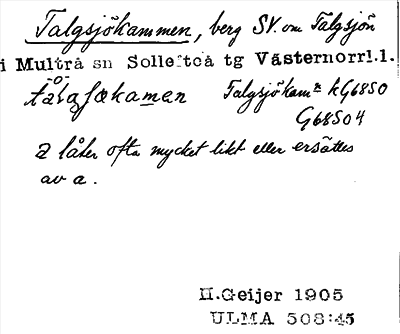 Talgsjökammen, berg SV. om Talgsjön
i Multrå sn Sollefteå tg Västernorrl.l.
Talgsjökamn kG6850
G6850 4
a låter ofta mycket likt eller ersättes
av a.
H.Geijer 1905
ULMA 508:45